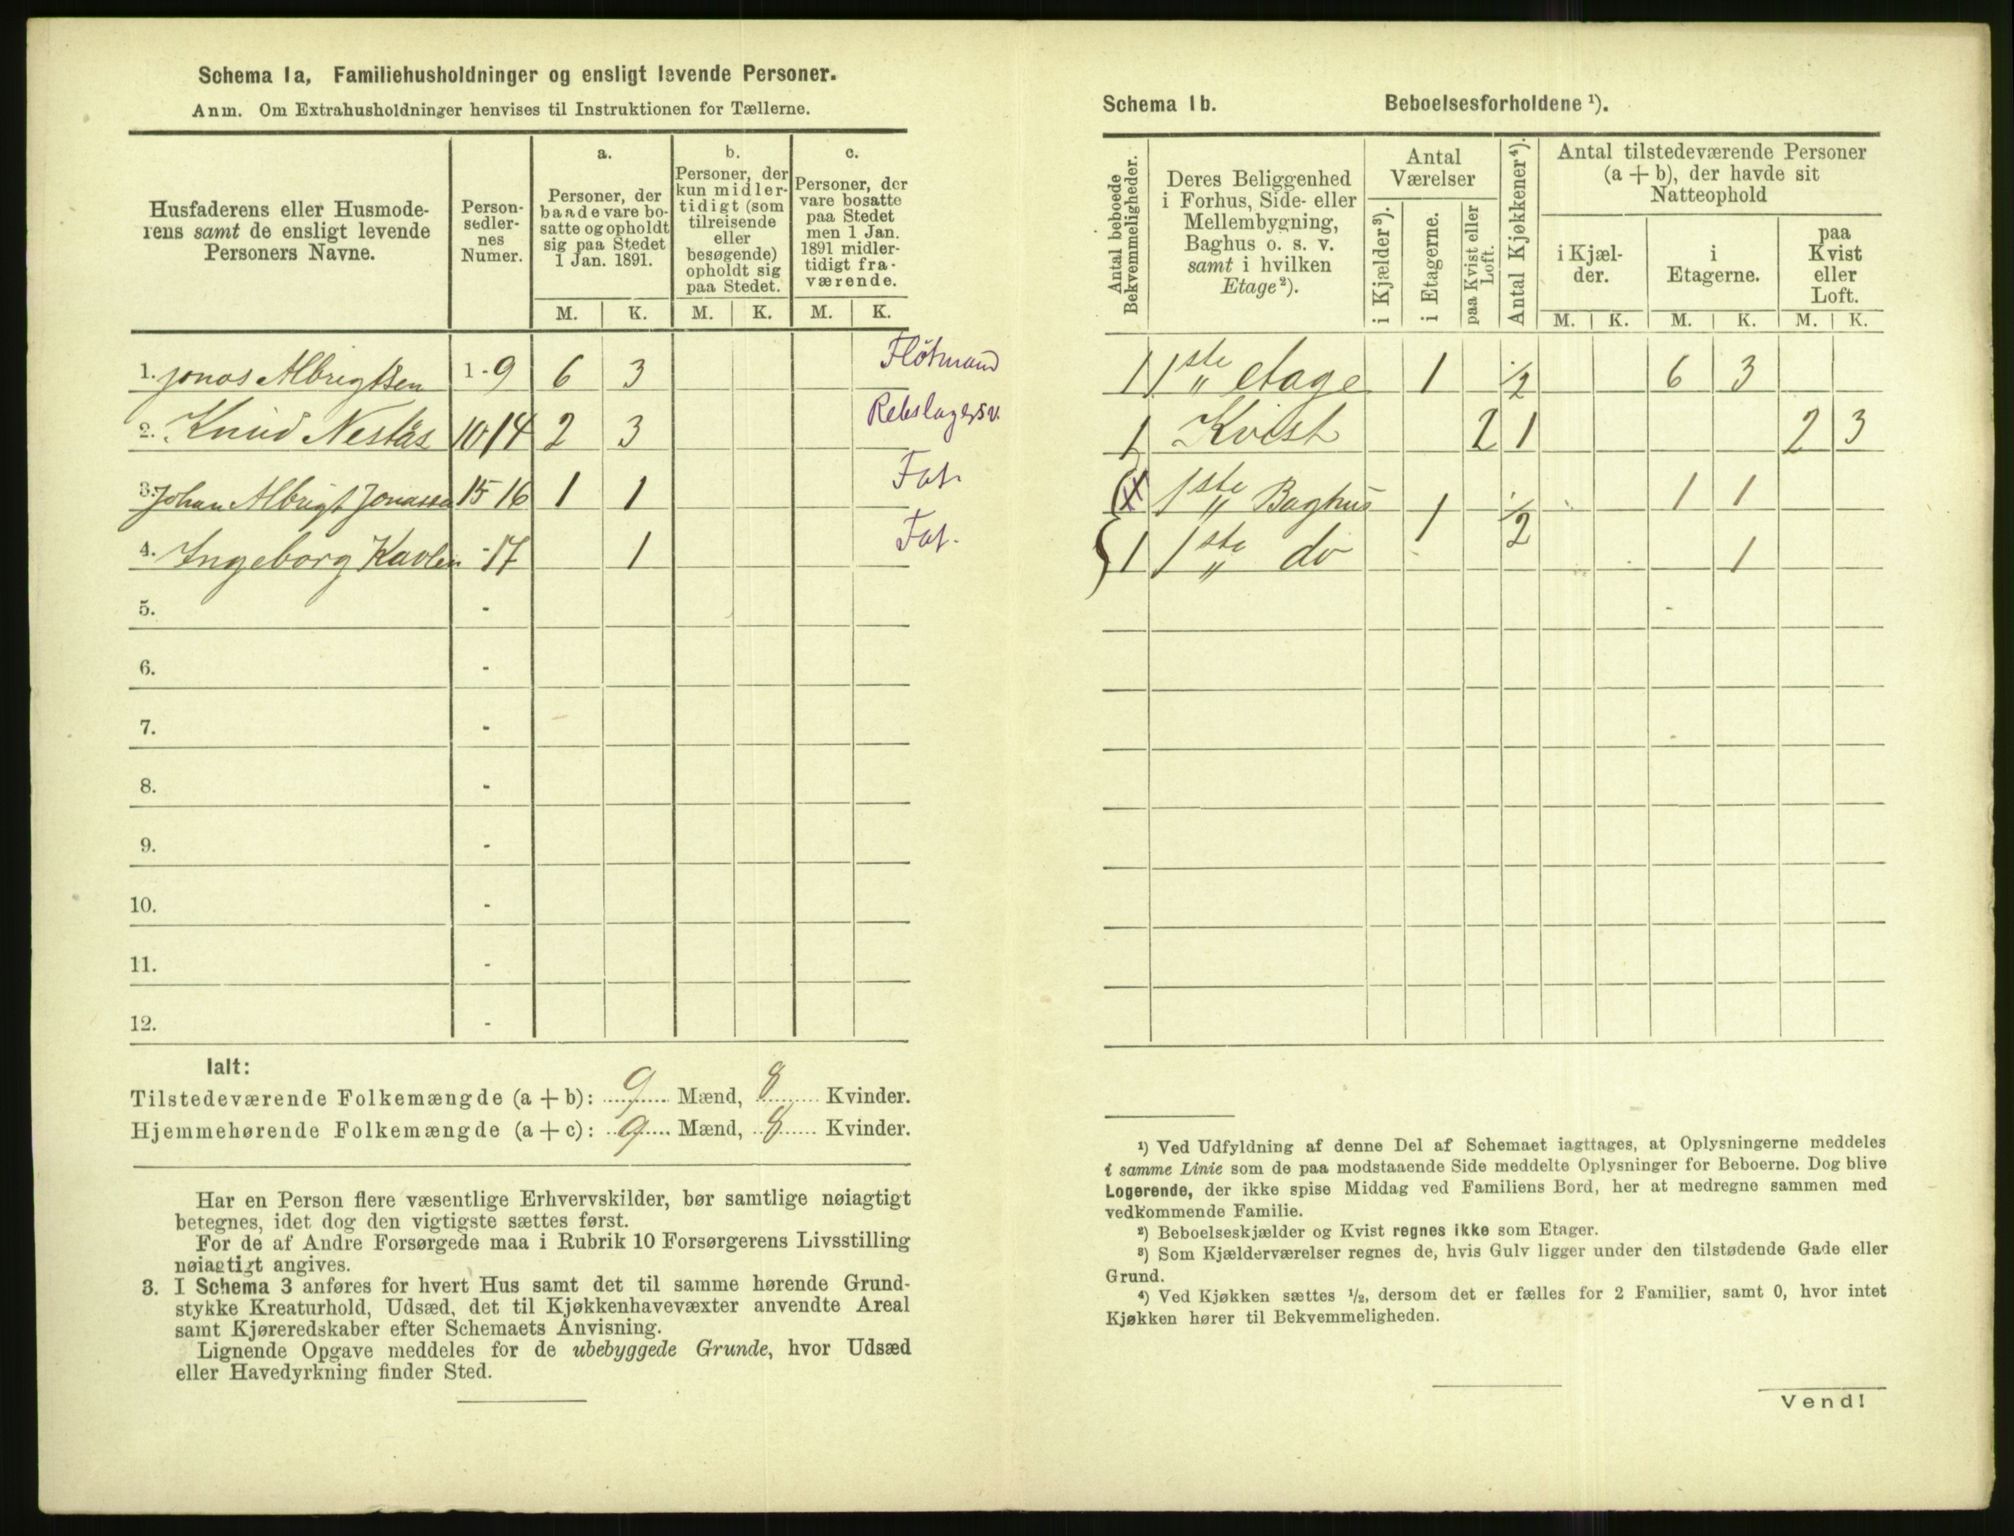 Schema 1a. Familiehusholdninger og ensligt levende Personer.
Anm. Om Extrahusholdninger henvises til Instruktionen for Tællerne.
Husfaderens eller Husmoderens samt de ensligt levende Personers Navne.
Personsedlernes Numer.
a. Personer, der baade vare bosatte og opholdt sig paa Stedet 1 Jan. 1891.
b. Personer, der kun midlertidigt (som tilreisende eller besøgende) opholdt sig paa Stedet.
c. Personer, der vare bosatte paa Stedet men 1 Jan. 1891 midlertidigt fraværende.
M. K. M. K. M. K.
1. Jonas Albrigtsen 1-9 6 3 Flötmand
2. Knud Nestås 10-14 2 3 Rebslagersv.
3. Johan Albrigt Jonassen 15-16 1 1 Fat.
4. Ingeborg Kavlen -17 1 Fat.
5. -
6. -
7. -
8. -
9. -
10. -
11. -
12. -
Ialt:
Tilstedeværende Folkemængde (a + b): 9 Mænd, 8 Kvinder.
Hjemmehørende Folkemængde (a + c): 9 Mænd, 8 Kvinder.
Har en Person flere væsentlige Erhvervskilder, bør samtlige nøiagtigt
betegnes, idet dog den vigtigste sættes først.
For de af Andre Forsørgede maa i Rubrik 10 Forsørgerens Livsstilling
nøiagtigt angives.
3. I Schema 3 anføres for hvert Hus samt det til samme hørende Grund-
stykke Kreaturhold, Udsæd, det til Kjøkkenhavevæxter anvendte Areal
samt Kjøreredskaber efter Schemaets Anvisning.
Lignende Opgave meddeles for de ubebyggede Grunde, hvor Udsæd
eller Havedyrkning finder Sted.
Schema 1b. Beboelsesforholdene ¹).
Antal beboede Bekvemmeligheder.
Deres Beliggenhed i Forhus, Side- eller Mellembygning, Baghus o. s. v. samt i hvilken Etage²).
Antal Værelser
i Kjælder³).
i Etagerne.
paa Kvist eller Loft.
Antal Kjøkkener⁴).
Antal tilstedeværende Personer (a + b), der havde sit Natteophold
i Kjælder.
i Etagerne.
paa Kvist eller Loft.
M. K. M. K. M. K.
1 1ste " etage 1 1/2 6 3
1 Kvist 2 1 2 3
1ste " Baghus 1 1/2 1 1
1 1ste " do 1
¹) Ved Udfyldning af denne Del af Schemaet iagttages, at Oplysningerne meddeles
i samme Linie som de paa modstaaende Side meddelte Oplysninger for Beboerne. Dog blive
Logerende, der ikke spise Middag ved Familiens Bord, her at medregne sammen med
vedkommende Familie.
²) Beboelseskjælder og Kvist regnes ikke som Etager.
³) Som Kjælderværelser regnes de, hvis Gulv ligger under den tilstødende Gade eller
Grund.
⁴) Ved Kjøkken sættes ¹/₂, dersom det er fælles for 2 Familier, samt 0, hvor intet
Kjøkken hører til Bekvemmeligheden.
Vend!